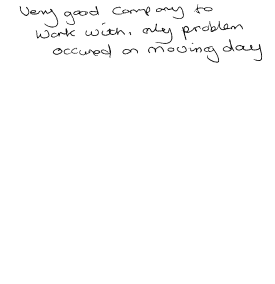 Very good company to
work with, only problem
occured on moving day